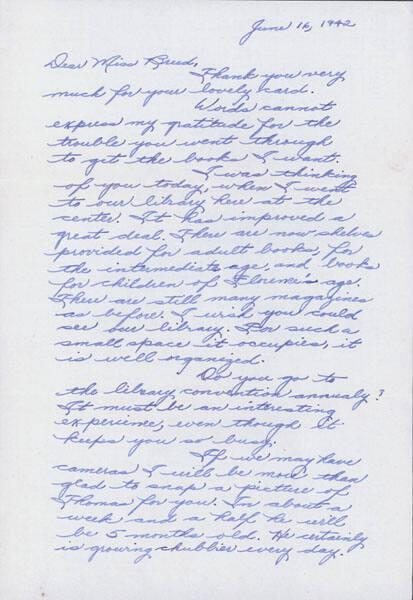 June 16, 1942
Dear Miss Breed,
Thank you very
much for your lovely card.
Words cannot
express my gratitude for the
trouble you went through
to get the books I want.
I was thinking
of you today, when I went
to our library here at the
center. It has improved a
great deal. There are now shelves
provided for adult books, for
the intermediate age, and books
for children of Florence's age.
There are still many magazines
as before. I wish you could
see our library. For such a
small space it occupies, it
is well organized.
Do you go to
the library convention annualy?
It must be an interesting
experience, even though it
keeps you so busy.
If we may have
cameras I will be more than
glad to snap a picture of
Thomas for you. In about a
week and a half he will
be 5 months old. He certainly
is growing chubbier every day.